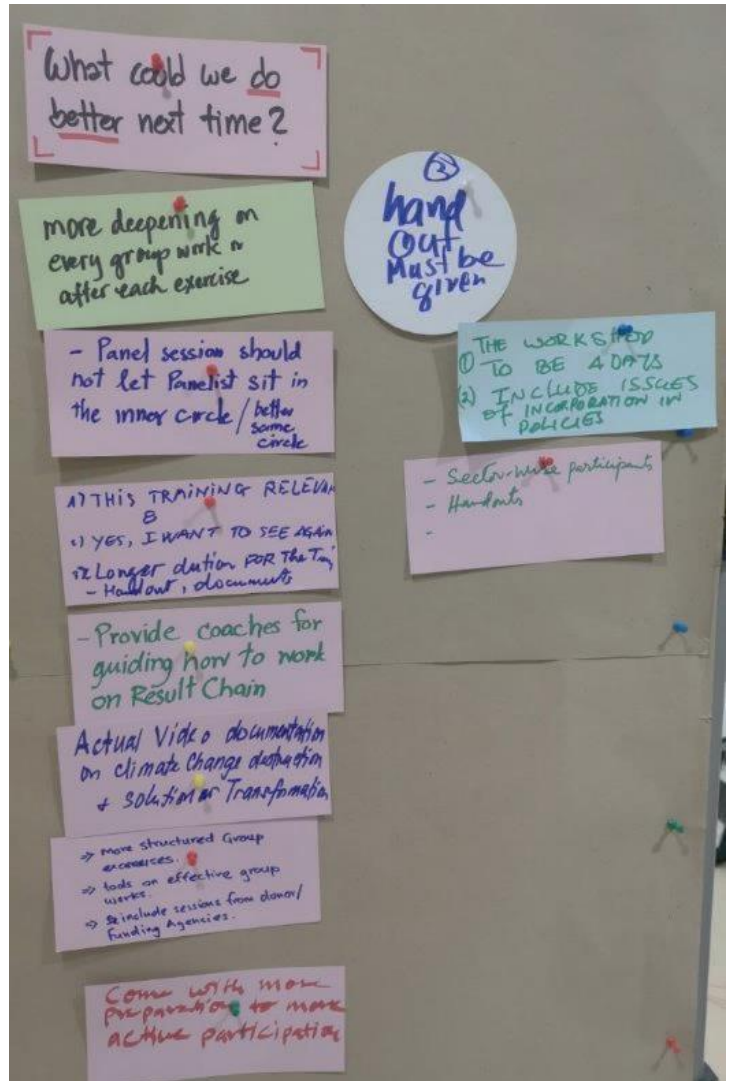 What could we do
better next time?
more deepening on
every group work
after each exercise
- Panel session should
not let Panelist sit in
the inner circle / better
same
circle
THIS TRAINING RELEVAN
8
YES, I WANT TO SEE AGAIN
Longer dution FOR The
- Handout, documents
- Provide coaches for
guiding how to work
on Result Chain
Actual Video documentation
on climate Change destruction
+ solution or Transformation
=> more structured Group
exercises.
=> tools on effective group
works.
=> include sessions from donor/
Funding Agencies.
Come with more
preparation to more
active participation
②
hand
Out
Must be
given
THE WORKSHOP
① TO BE 4 DAYS
(2) INCLUDE ISSUES
of INCORPORATION IN
POLICIES
- Sector-wise participants
- Handouts
-